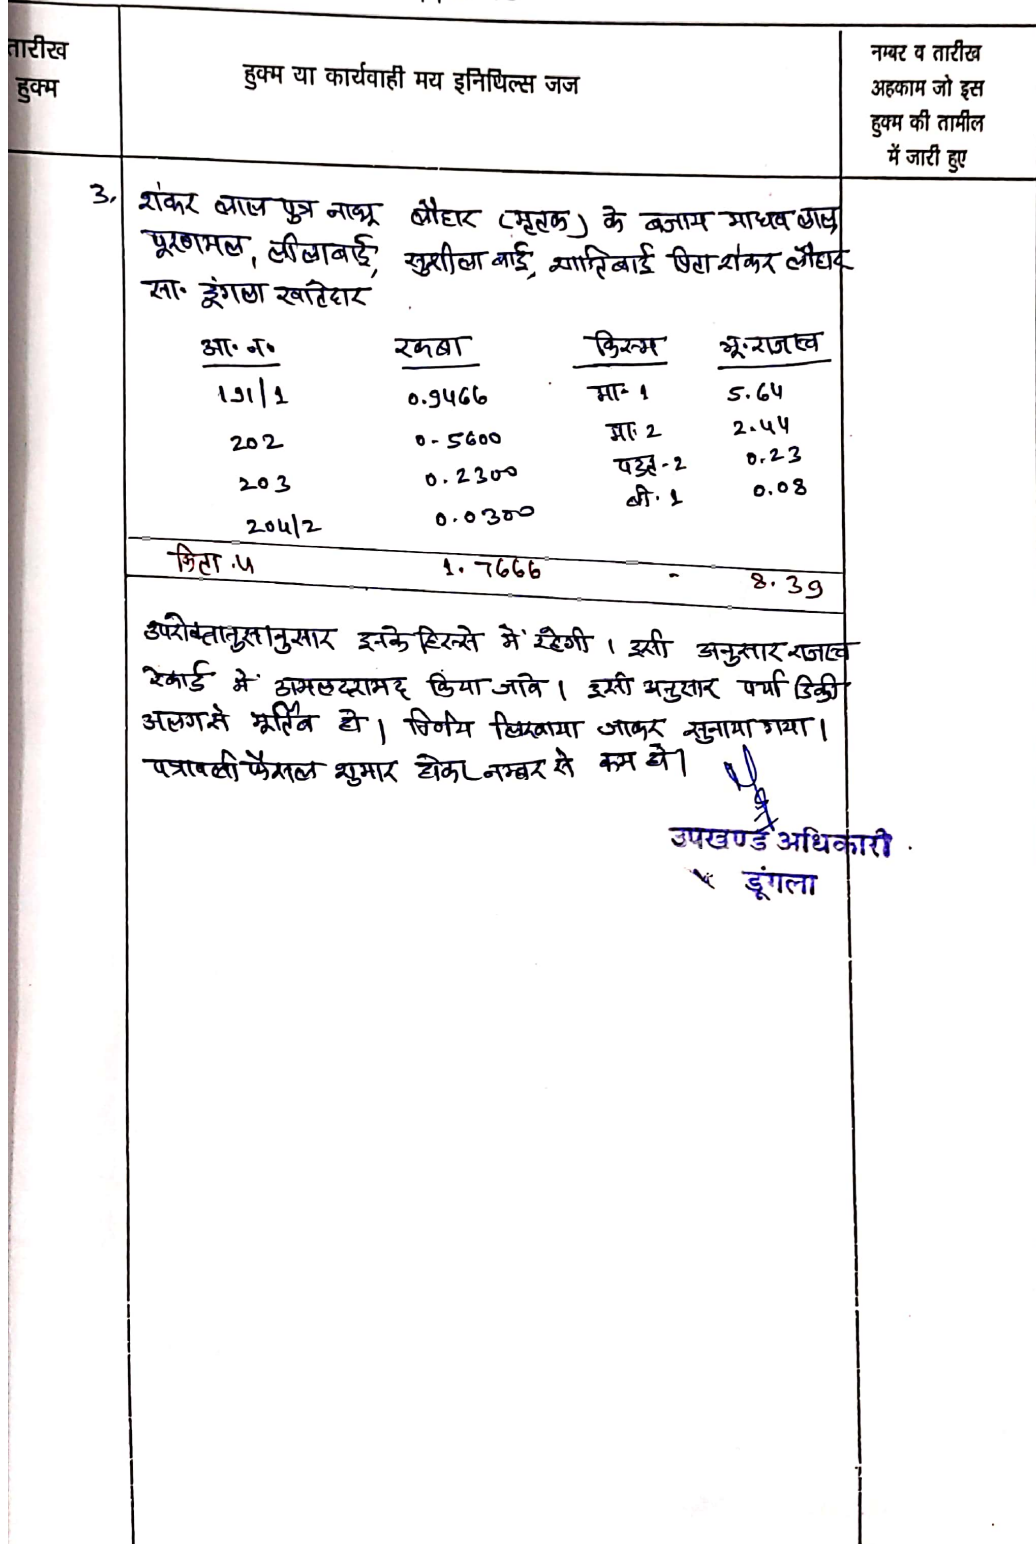 तारीख
हुक्म
हुक्म या कार्यवाही मय इनिथिल्स जज
नम्बर व तारीख
अहकाम जो इस
हुक्म की तामील
में जारी हुए
3. शंकर लाल पुत्र नाथू लौहार (मृतक) के बजाय माधव लाल
पूरणमल, लीलाबाई, सुशीला बाई, शान्तिबाई पिता शंकर लौहार
सा. डूंगला खातेदार
आ. न. रकबा किस्म भू. राजस्व
191/1 0.9466 मा- 1 5.64
202 0-5600 मा. 2 2.44
203 0.2300 पड़त-2 0.23
204/2 0.0300 बी. 1 0.08
किता .4 1.7666 - 8.39
उपरोक्तानुसानुसार इनके हिस्से में रहेगी । इसी अनुसार राजस्व
रेकार्ड में अमलदरामद किया जावे । इसी अनुसार पर्चा डिक्री
अलग से मूर्तिब हो । निर्णय लिखाया जाकर सुनाया गया ।
पत्रावली फैसल शुमार होकर नम्बर से कम हो ।
उपखण्ड अधिकारी
डूंगला